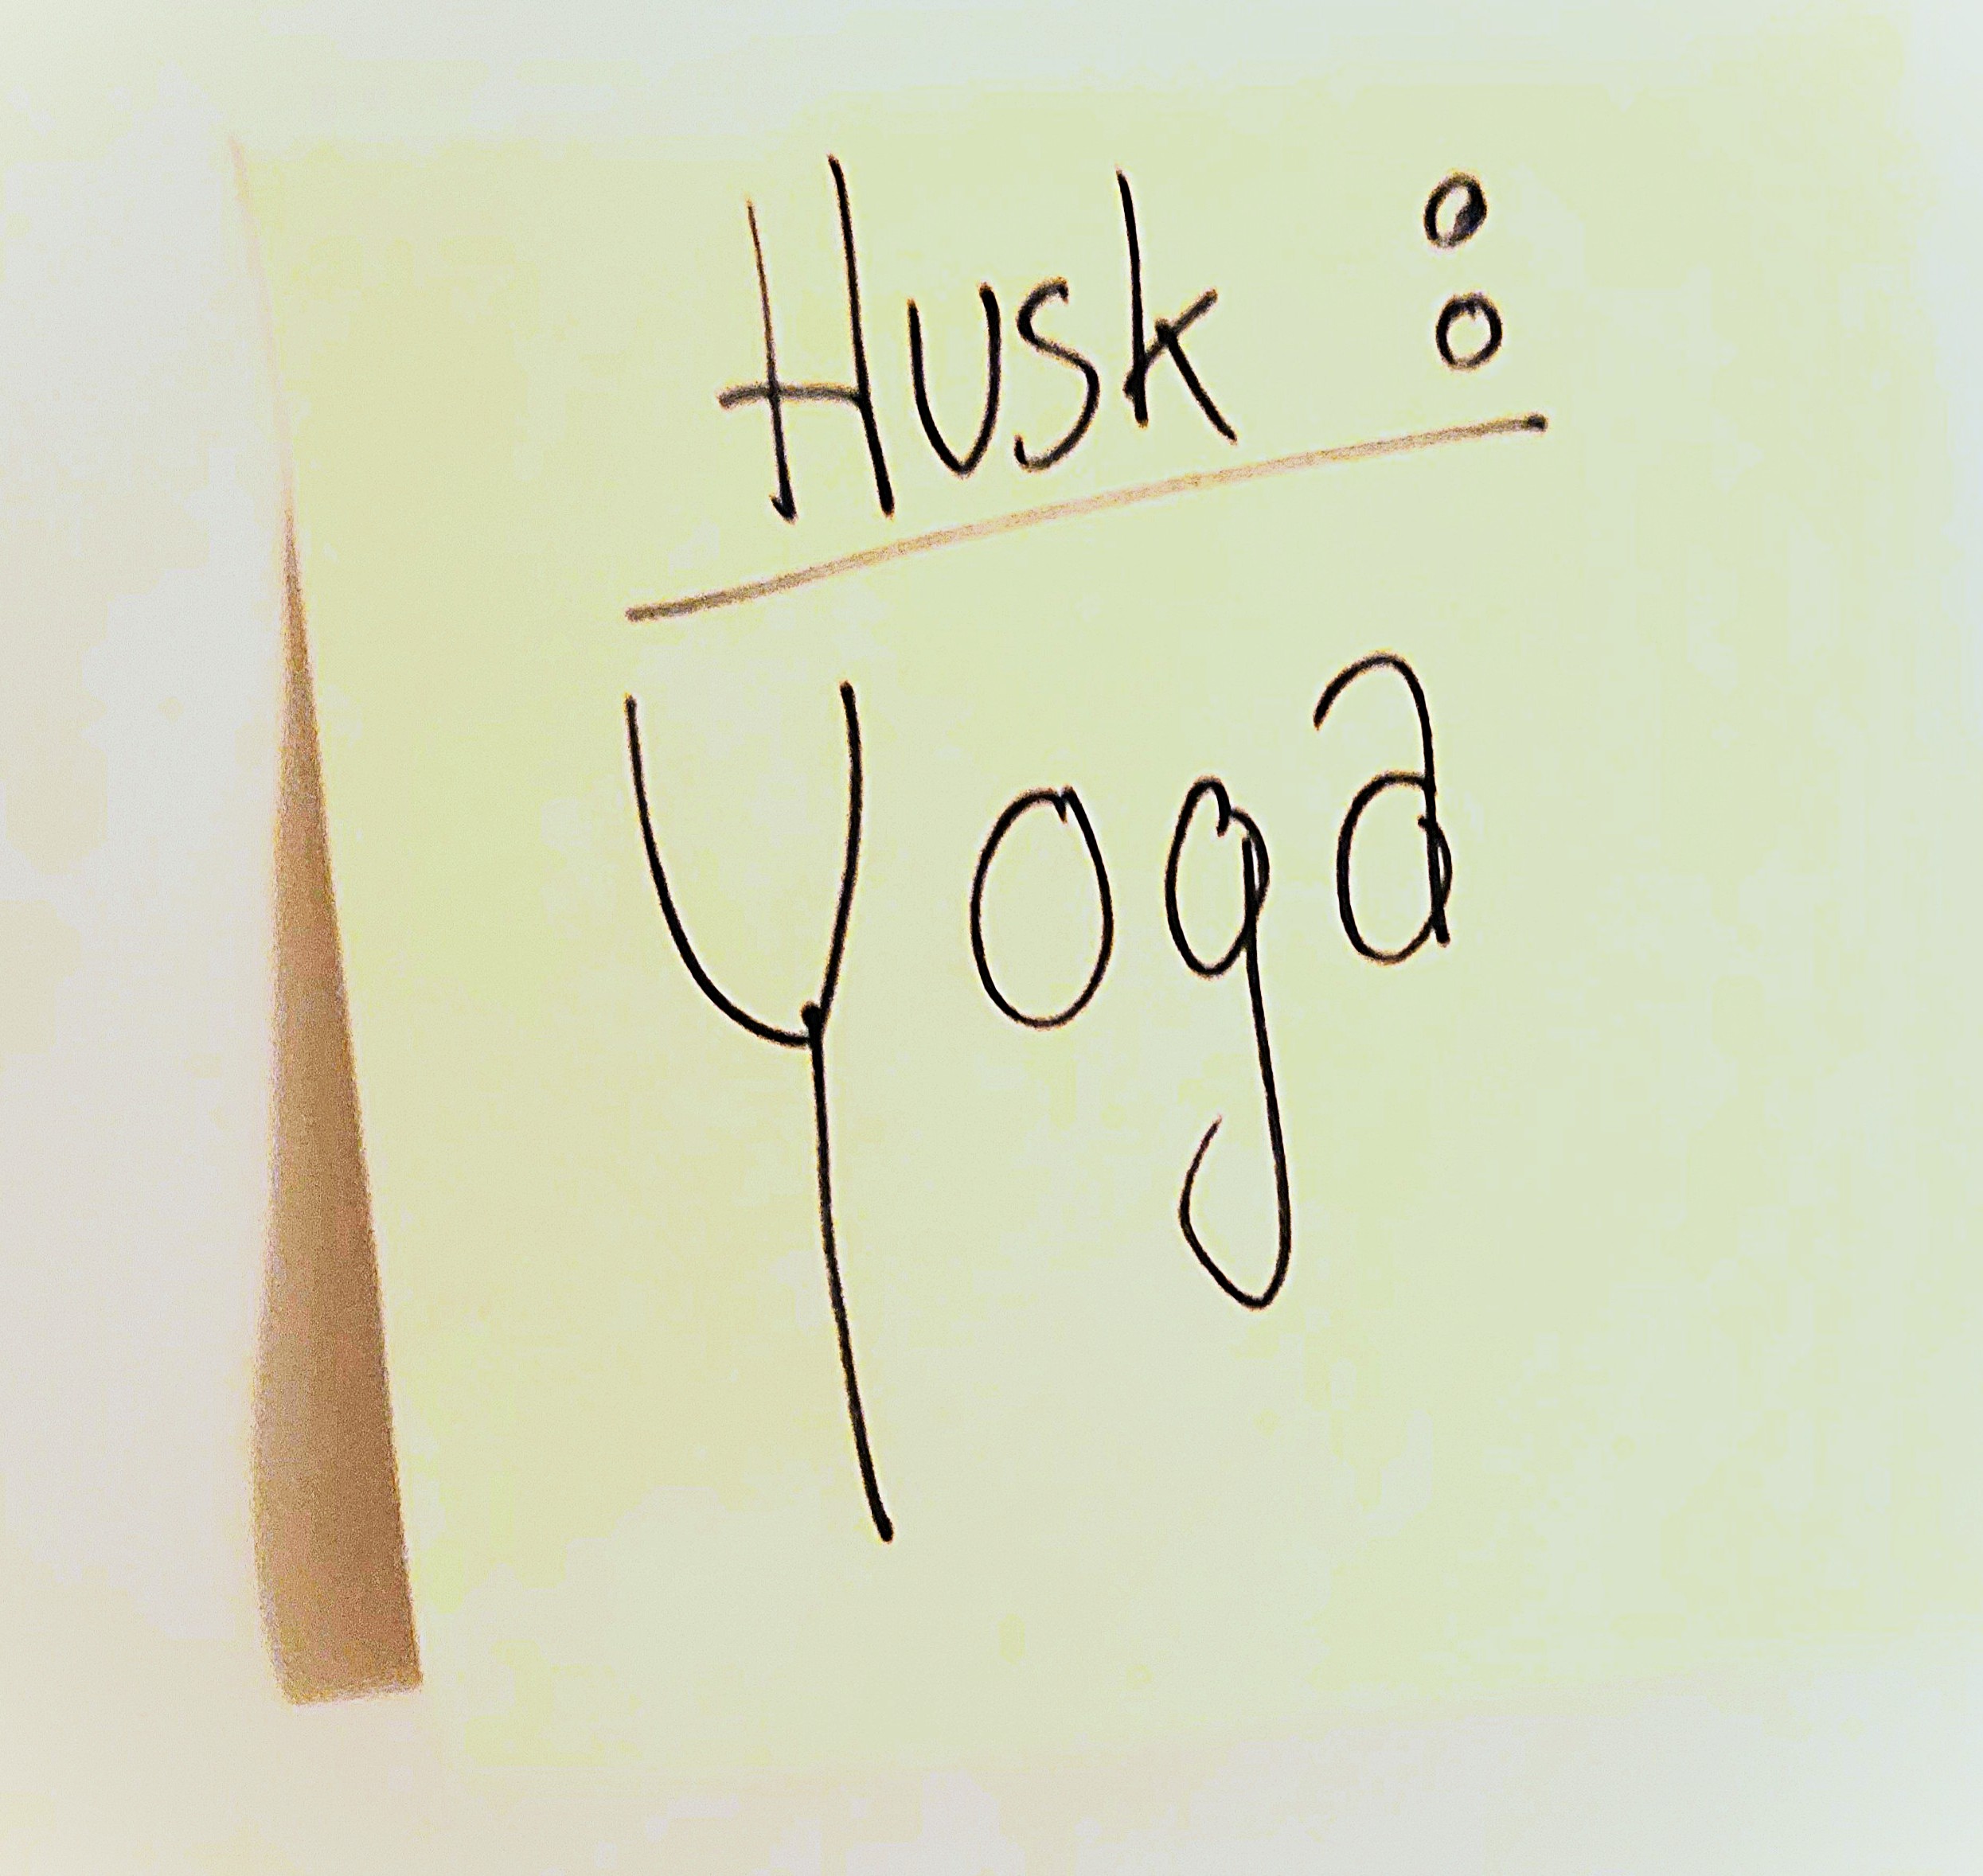 Husk :
Yoga